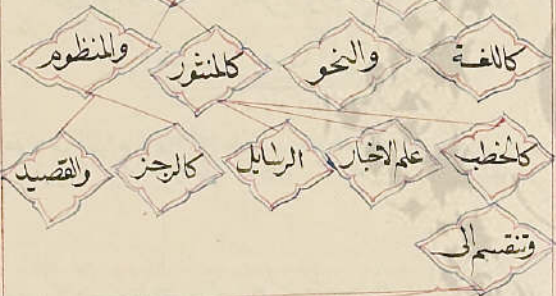 كاللغة والنحو كالمنثور والمنظوم
كالخطب علم الاخبار الرسايل كالرجز والقصيد
وتنقسم الى